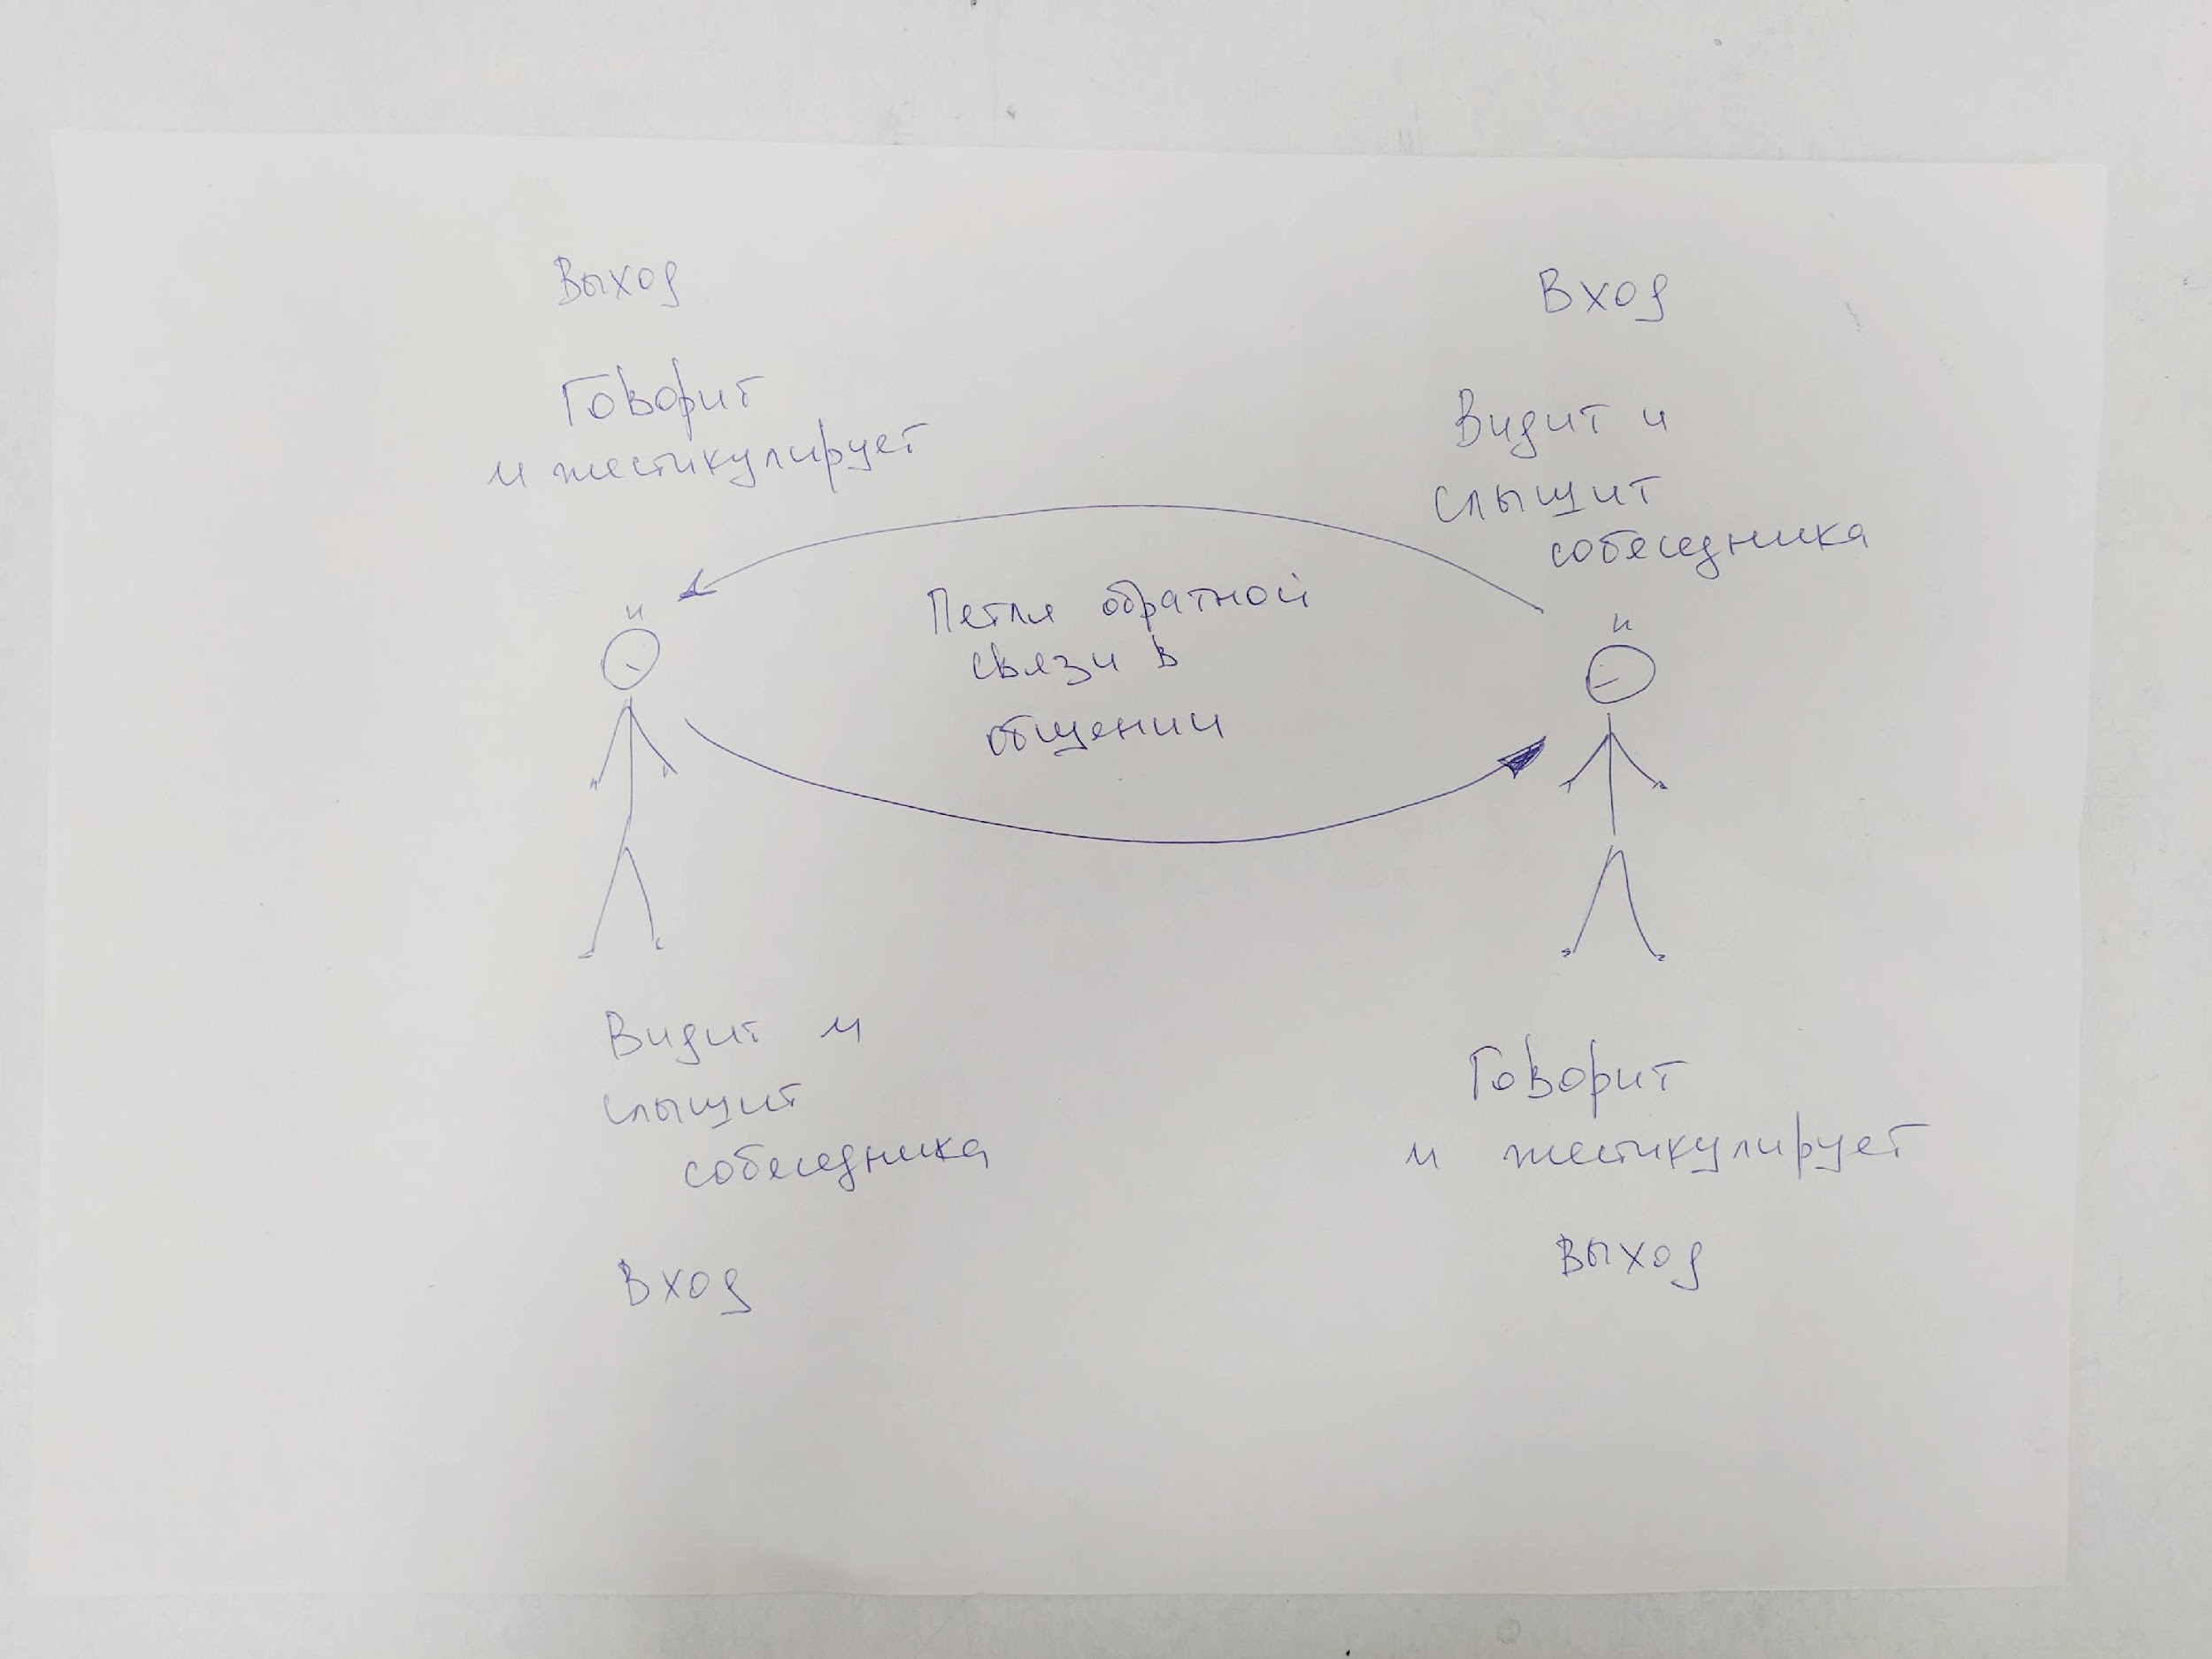 Выход
Говорит
и жестикулирует
Вход
Видит и
слышит
собеседника
Петля обратной
связи в
общении
Видит и
слышит
собеседника
Вход
Говорит
и жестикулирует
Выход